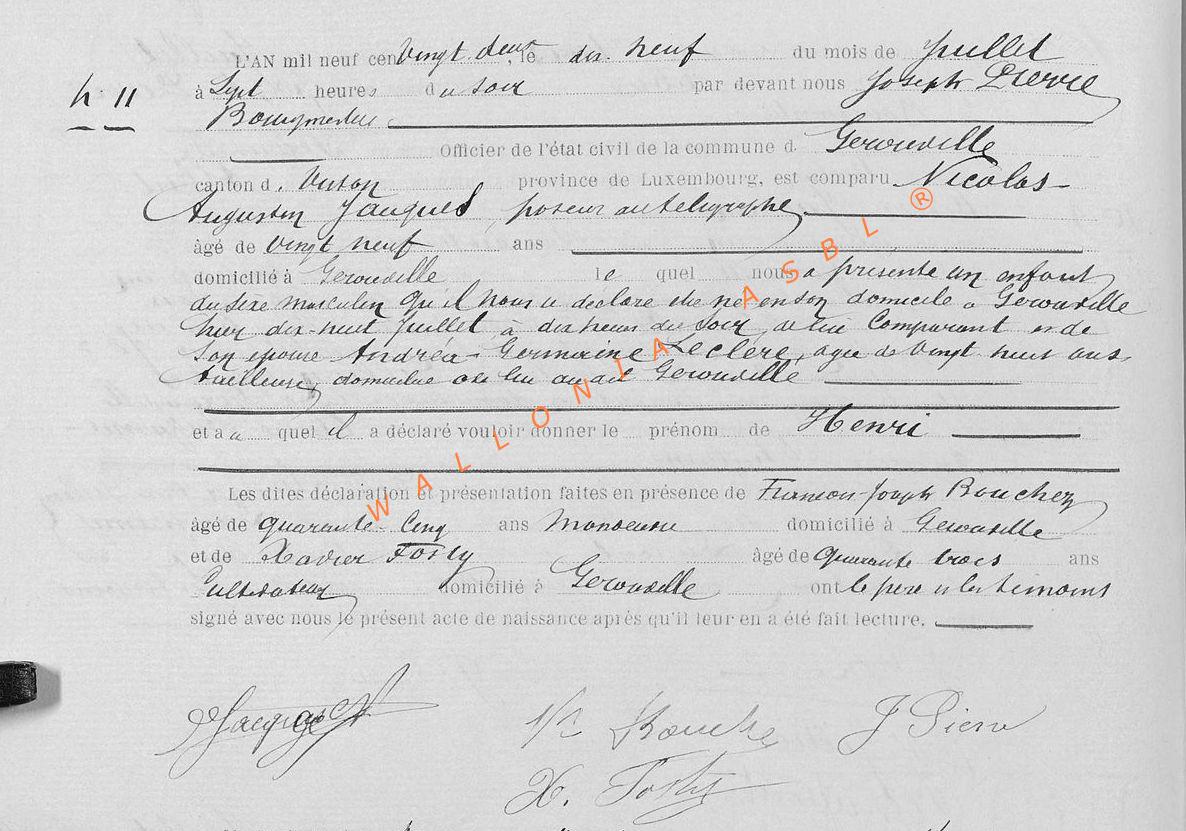 L'AN mil neuf cent vingt-deux, le dix-neuf du mois de Juillet
à Sept heures du soir par devant nous Joseph Pierre
N° 11
Bourgmestre
Officier de l'état civil de la commune d. Gerouville
canton d. Virton province de Luxembourg, est comparu Nicolas-
Augustin Jacques, poseur au télégraphe,
âgé de vingt neuf ans
domicilié à Gerouville lequel nous a présenté un enfant
du sexe masculin qu'il nous a déclaré être né en son domicile à Gerouville
hier dix-huit Juillet à dix heures du soir, de lui Comparant et de
son épouse Andréa-Germaine Leclère, agée de vingt huit ans,
tailleuse, domiciliée avec lui audit Gerouville
et auquel il a déclaré vouloir donner le prénom de Henri
Les dites déclaration et présentation faites en présence de Joseph Bouchez
âgé de quarante-cinq ans Manoeuvre domicilié à Gerouville
et de Xavier Fosty âgé de quarante trois ans
Cultivateur domicilié à Gerouville ont le père et les témoins
signé avec nous le présent acte de naissance après qu'il leur en a été fait lecture.
Jacques J Pierre
X. Fosty
WALLONIA ASBL ®